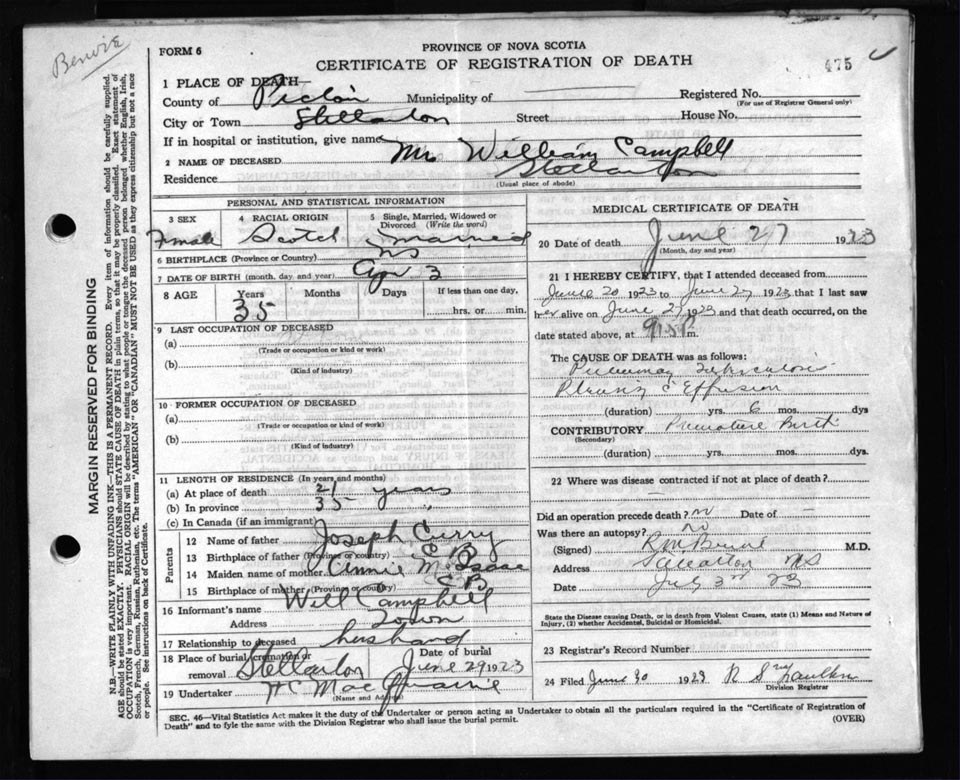 Benvie
FORM 6
PROVINCE OF NOVA SCOTIA
CERTIFICATE OF REGISTRATION OF DEATH
475
1 PLACE OF DEATH—
County of Pictou Municipality of Registered No.
(For use of Registrar General only)
City or Town Stellarton Street House No.
If in hospital or institution, give name
2 NAME OF DECEASED Mrs William Campbell
Residence Stellarton
(Usual place of abode)
PERSONAL AND STATISTICAL INFORMATION
3 SEX 4 RACIAL ORIGIN 5 Single, Married, Widowed or Divorced (Write the word)
Female Scotch Married
6 BIRTHPLACE (Province or Country) NS
7 DATE OF BIRTH (month, day and year) Apr 3
8 AGE Years Months Days If less than one day,
35 hrs. or min.
9 LAST OCCUPATION OF DECEASED
(a)
(Trade or occupation or kind of work)
(b)
(Kind of industry)
10 FORMER OCCUPATION OF DECEASED
(a)
(Trade or occupation or kind of work)
(b)
(Kind of industry)
11 LENGTH OF RESIDENCE (In years and months)
(a) At place of death 21 years
(b) In province 35 "
(c) In Canada (if an immigrant)
Parents
12 Name of father Joseph Curry
13 Birthplace of father (Province or country) C B
14 Maiden name of mother Annie McIsaac
15 Birthplace of mother (Province or country) C B
16 Informant's name Will Campbell
Address Town
17 Relationship to deceased husband
18 Place of burial, cremation or removal Stellarton Date of burial June 29 1923
19 Undertaker
(Name and Address)
MEDICAL CERTIFICATE OF DEATH
20 Date of death June 27 1923
(Month, day and year)
21 I HEREBY CERTIFY, that I attended deceased from
June 20 1923 to June 27 1923 that I last saw
her alive on June 27 1923 and that death occurred, on the
date stated above, at m.
The CAUSE OF DEATH was as follows:
Pulmonary Tuberculosis
Pleurisy c Effusion
(duration) yrs. 6 mos. dys
CONTRIBUTORY Premature Birth
(Secondary)
(duration) yrs. mos. dys.
22 Where was disease contracted if not at place of death?
Did an operation precede death? no Date of —
Was there an autopsy? no
(Signed) M.D.
Address Stellarton NS
Date July 3rd 23
State the Disease causing Death, or in death from Violent Causes, state (1) Means and Nature of
Injury, (2) whether Accidental, Suicidal or Homicidal.
23 Registrar's Record Number
24 Filed June 30 1923
Division Registrar
SEC. 46—Vital Statistics Act makes it the duty of the Undertaker or person acting as Undertaker to obtain all the particulars required in the "Certificate of Registration of
Death" and to fyle the same with the Division Registrar who shall issue the burial permit.
(OVER)
MARGIN RESERVED FOR BINDING
N.B.—WRITE PLAINLY WITH UNFADING INK—THIS IS A PERMANENT RECORD. Every item of information should be carefully supplied.
AGE should be stated EXACTLY. PHYSICIANS should STATE CAUSE OF DEATH in plain terms, so that it may be properly classified. Exact statement of
OCCUPATION is very important. RACIAL ORIGIN will be described by stating to what people or tongue the deceased person belonged, whether English, Irish,
Scotch, French, German, Russian, Ruthenian, etc. The terms "AMERICAN" or "CANADIAN" MUST NOT BE USED as they express citizenship but not a race
or people. See instructions on back of Certificate.